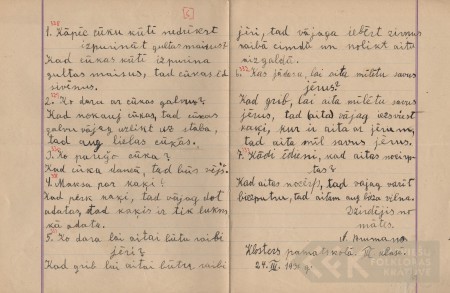 [6]
1. Kāpēc cūku kūtī nedrīkst
izpurināt gultas maisus?
Kad cūkas kūtī izpurina
gultas maisus, tad cūkas ēd
sivēnus.
2. Ko dara ar cūkas galvu?
Kad nokauj cūkas, tad cūkas
galvu vajag uzlikt uz staba,
tad aug lielas cūkas.
3. Ko pareģo cūka?
Kad cūka danco, tad būs vējš.
4. Maksa par kaķi?
Kad pērk kaķi, tad vajag dot
adatas, tad kaķis ir tik
kā adata.
5. Ko dara lai aitai būtu raibi
jēri?
Kad grib lai aitai būtu raibi
jēri, tad vajaga iebērt zirņus
raibā cimdā un nolikt aitu
aizgaldā.
6. Kas jādara, lai aita mīlētu savus
jērus?
Kad grib, lai aita mīlētu savus
jērus, tad vajag uzsviest
kaķi, kur ir aita ar jēriem,
tad aita mīl savus jērus.
7. Kādi ēdieni, kad aitas nocirp-
tas?
Kad aitas nocirpj, tad vajag vārīt
biezputru, tad aitām aug bieza vilna.
Dzirdējis no
mātes.
Klosteres pamatskolā VI klase.